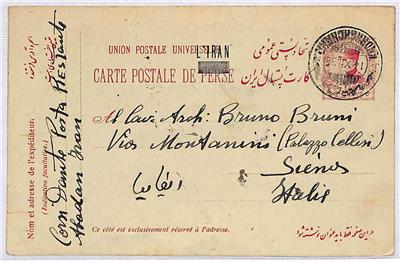 UNION POSTALE UNIVERSELLE
L'IRAN
CARTE POSTALE DE PERSE
اتحاد پستی عمومی
کارت پستال ایران
KHORRAMCHAHR
Al Cav. Arch: Bruno Bruni
Via Montanini (Palazzo Cellesi)
Siena
Italie
ایتالیا
Ce côté est exclusivement réservé à l'adresse.
در این صفحه فقط باید عنوان نوشته شود
Nom et adresse de l'expéditeur:
(Indication facultative)
Corn Dante Posta Restante
Abadan Iran